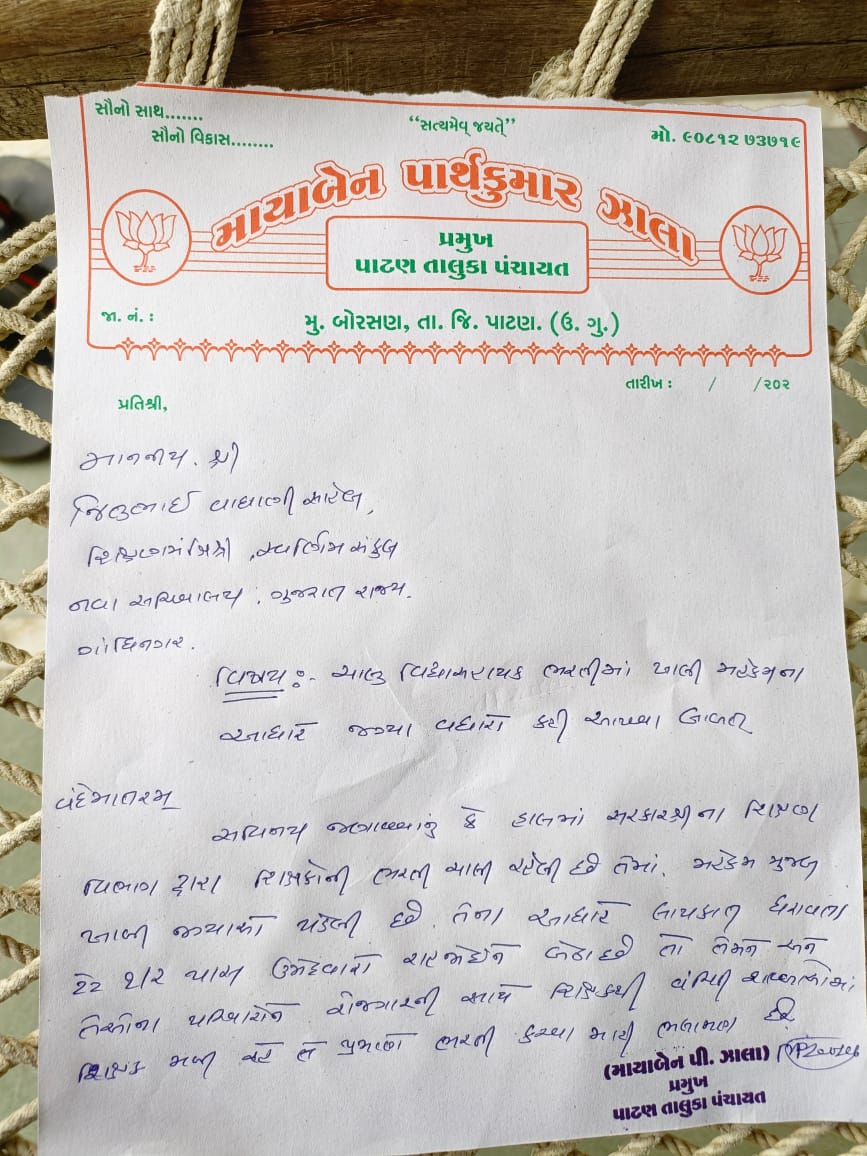 સૌનો સાથ.......
સૌનો વિકાસ........
“સત્યમેવ જયતે”
મો. ૯૦૮૧૨ ૭૩૭૧૯
માયાબેન પાર્થકુમાર ઝાલા
પ્રમુખ
પાટણ તાલુકા પંચાયત
જા. નં. :
મુ. બોરસણ, તા. જિ. પાટણ. (ઉ. ગુ.)
તારીખ : / /૨૦૨
પ્રતિશ્રી,
માનનીય. શ્રી
જિતુભાઈ વાઘાણી સાહેબ,
શિક્ષણમંત્રિશ્રી, સ્વર્ણિમ સંકુલ
નવા સચિવાલય, ગુજરાત રાજ્ય.
ગાંધિનગર.
વિષય :- ચાલુ વિદ્યાસહાયક ભરતીમાં ખાલી મહેકમના
આધારે જગ્યા વધારો કરી આપવા બાબત
વંદેમાતરમ્
સવિનય જણાવવાનું કે હાલમાં સરકારશ્રીના શિક્ષણ
વિભાગ દ્વારા શિક્ષકોની ભરતી ચાલી રહેલી છે તેમાં. મહેકમ મુજબ
ખાલી જગ્યાઓ પડેલી છે. તેના આધારે લાયકાત ધરાવતા
ટેટ ૧/૨ પાસ ઉમેદવારો રાહ જોઈને બેઠા છે તો તેમને અને
તેઓના પરિવારોને રોજગારની સાથે શિક્ષકથી વંચિત શાળાઓમાં
શિક્ષક મળી રહે તે પ્રમાણે ભરતી કરવા મારી ભલામણ છે.
(માયાબેન પી. ઝાલા)
પ્રમુખ
પાટણ તાલુકા પંચાયત